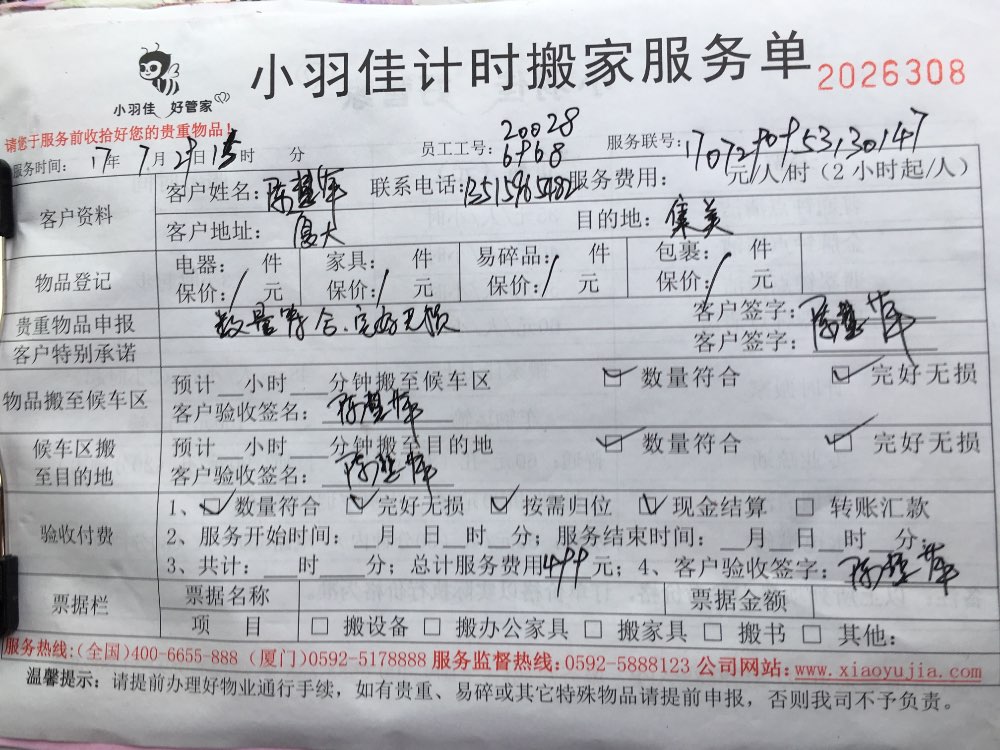 小羽佳 好管家
小羽佳计时搬家服务单 2026308
请您于服务前收拾好您的贵重物品！
20028
服务时间：17年7月29日15时 分 员工工号：6968 服务联号：
客户资料 客户姓名： 联系电话： 服务费用： 元/人/时（2小时起/人）
客户地址：厦大 目的地：集美
物品登记 电器： 件 家具： 件 易碎品： 件 包裹： 件
保价：/ 元 保价：/ 元 保价：/ 元 保价：/ 元
贵重物品申报 数量符合.完好无损 客户签字：
客户特别承诺 客户签字：
物品搬至候车区 预计__小时__分钟搬至候车区 ☑ 数量符合 ☑ 完好无损
客户验收签名：
候车区搬至目的地 预计__小时__分钟搬至目的地 ☑ 数量符合 ☑ 完好无损
客户验收签名：
验收付费 1、☑ 数量符合 ☑ 完好无损 ☑ 按需归位 ☑ 现金结算 □ 转账汇款
2、服务开始时间：__月__日__时__分；服务结束时间：__月__日__时__分；
3、共计：__时__分；总计服务费用 元；4、客户验收签字：
票据栏 票据名称 票据金额
项 目 □ 搬设备 □ 搬办公家具 □ 搬家具 □ 搬书 □ 其他：
服务热线：(全国)400-6655-888 (厦门)0592-5178888 服务监督热线：0592-5888123 公司网站：www.xiaoyujia.com
温馨提示：请提前办理好物业通行手续，如有贵重、易碎或其它特殊物品请提前申报，否则我司不予负责。